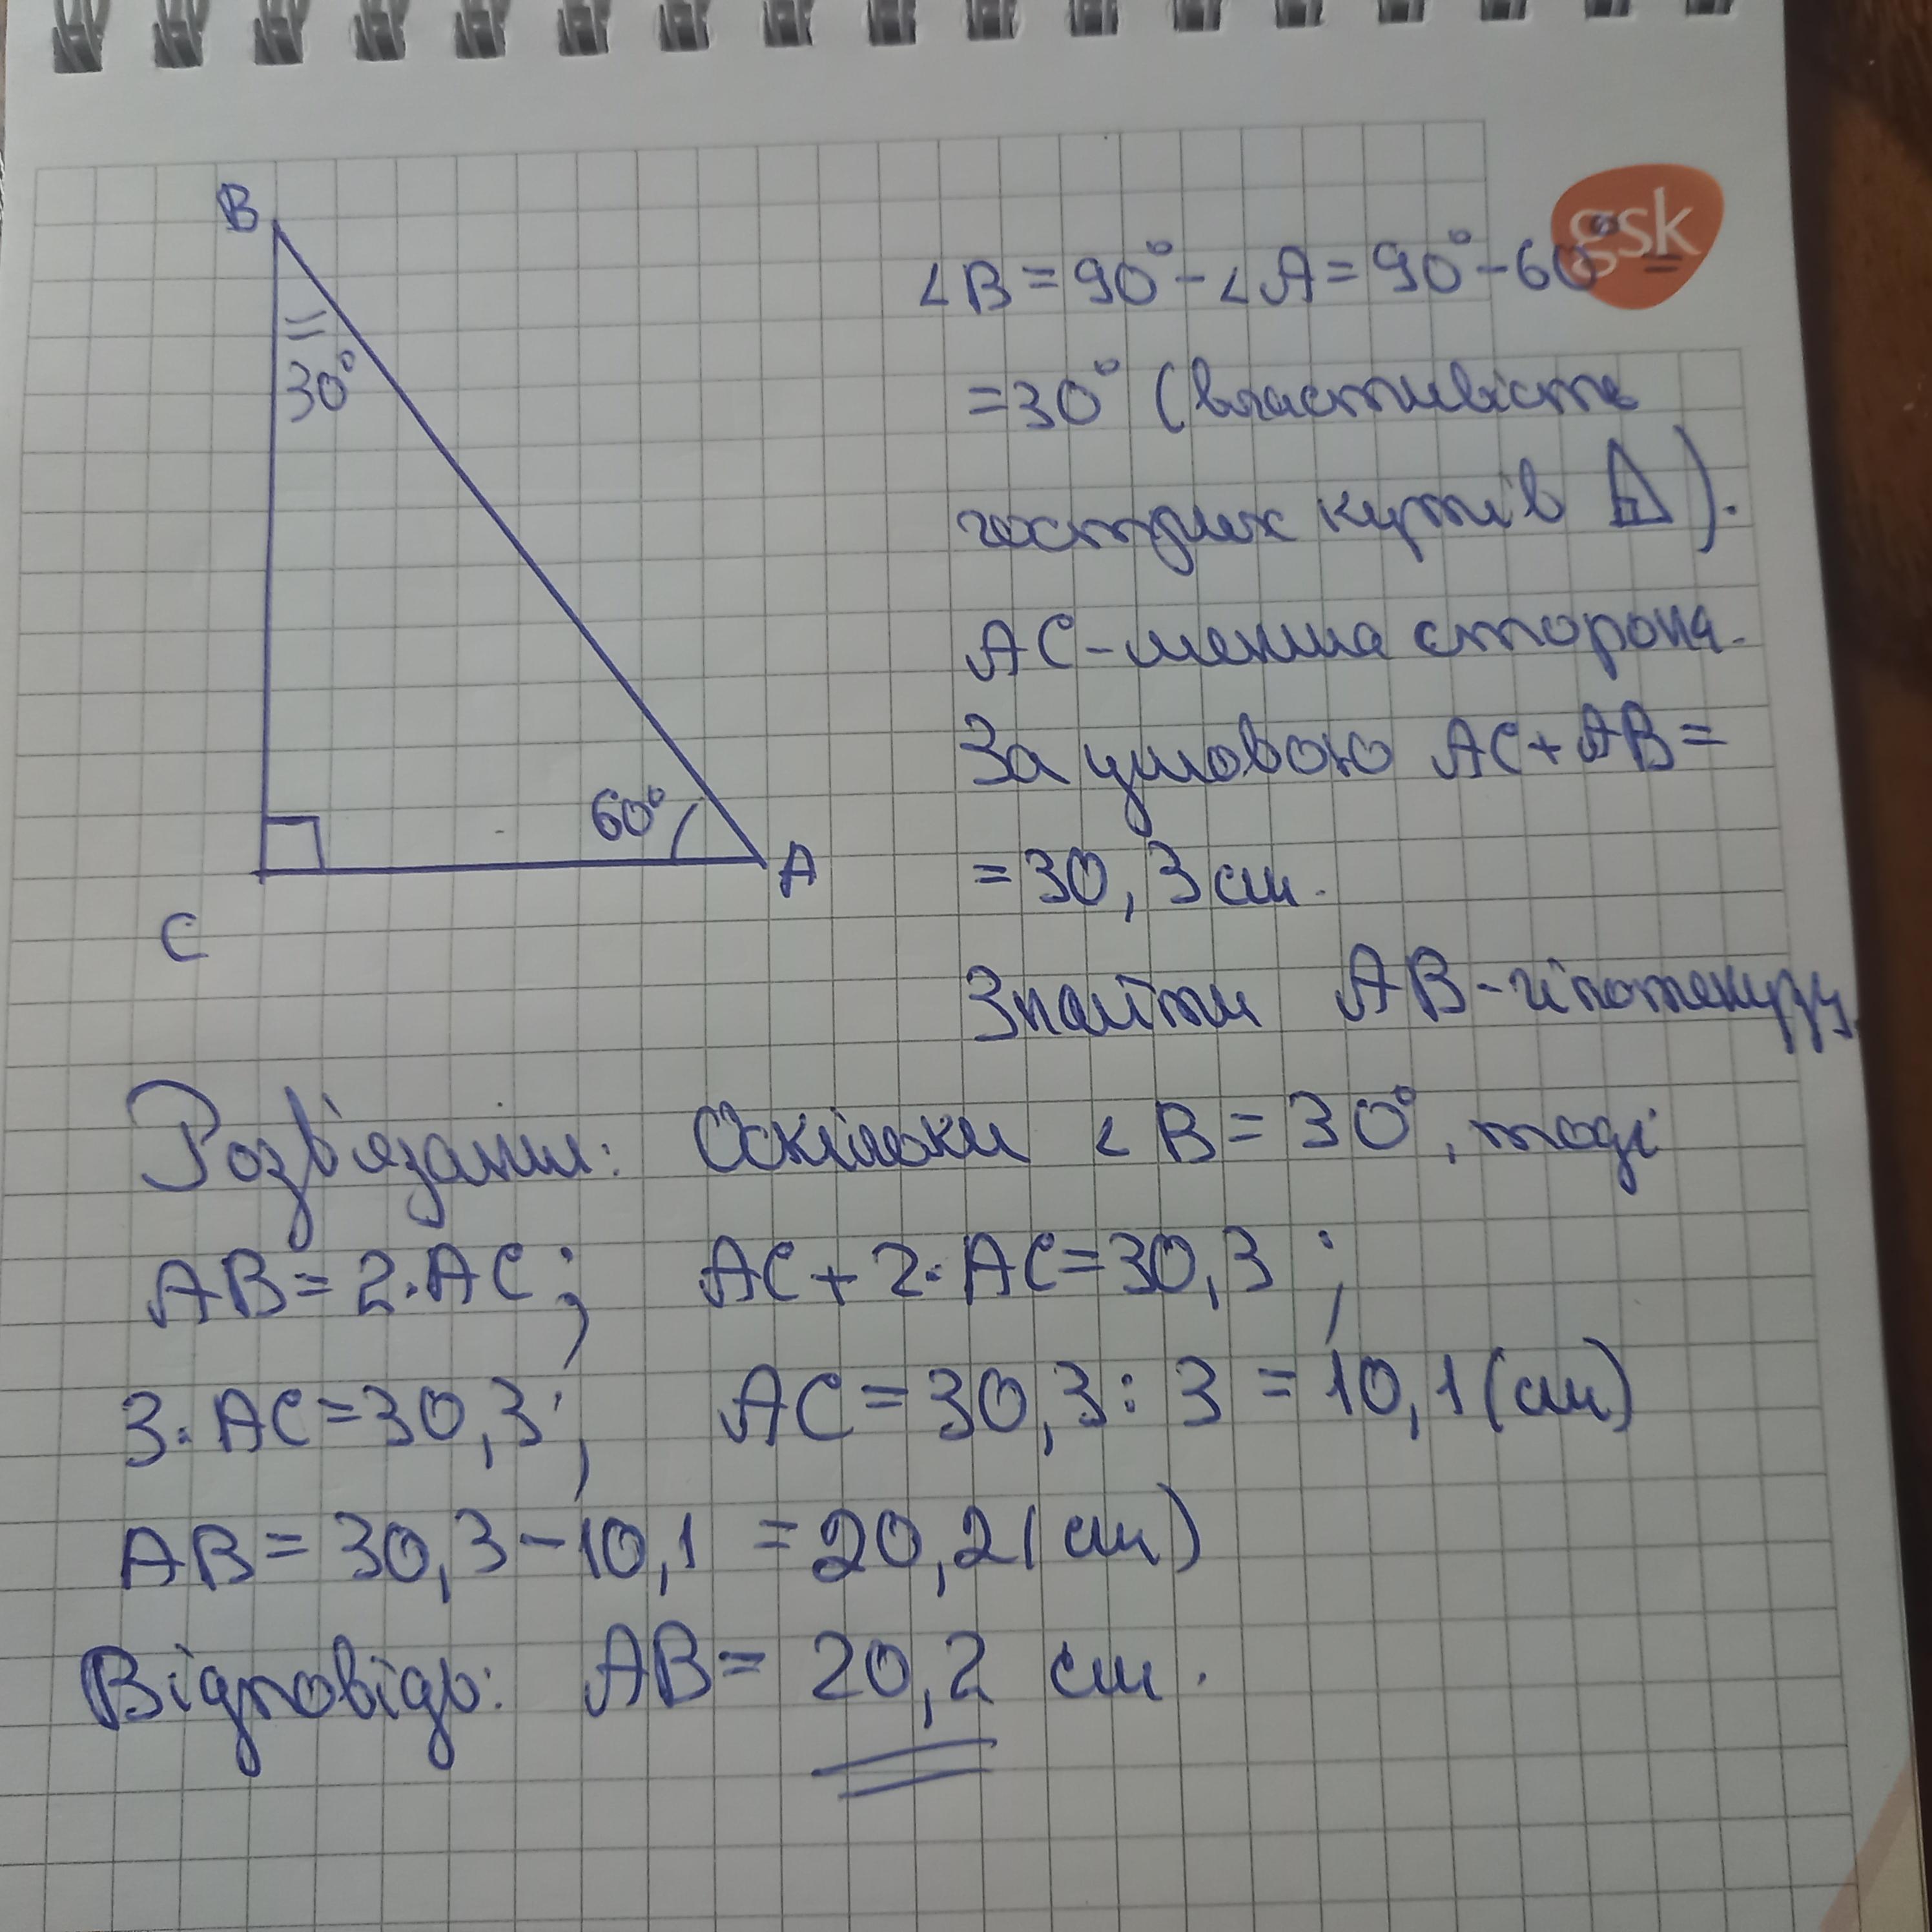 B
30°
60°
A
C
gsk
∠B = 90° - ∠A = 90° - 60° =
= 30° (властивість
гострих кутів ⊿).
AC - менша сторона.
За умовою AC + AB =
= 30,3 см.
Знайти AB - гіпотенузу
Розв'язання: Оскільки ∠B = 30°, тоді
AB = 2·AC; AC + 2·AC = 30,3;
3·AC = 30,3; AC = 30,3 : 3 = 10,1 (см)
AB = 30,3 - 10,1 = 20,2 (см)
Відповідь: AB = 20,2 см.